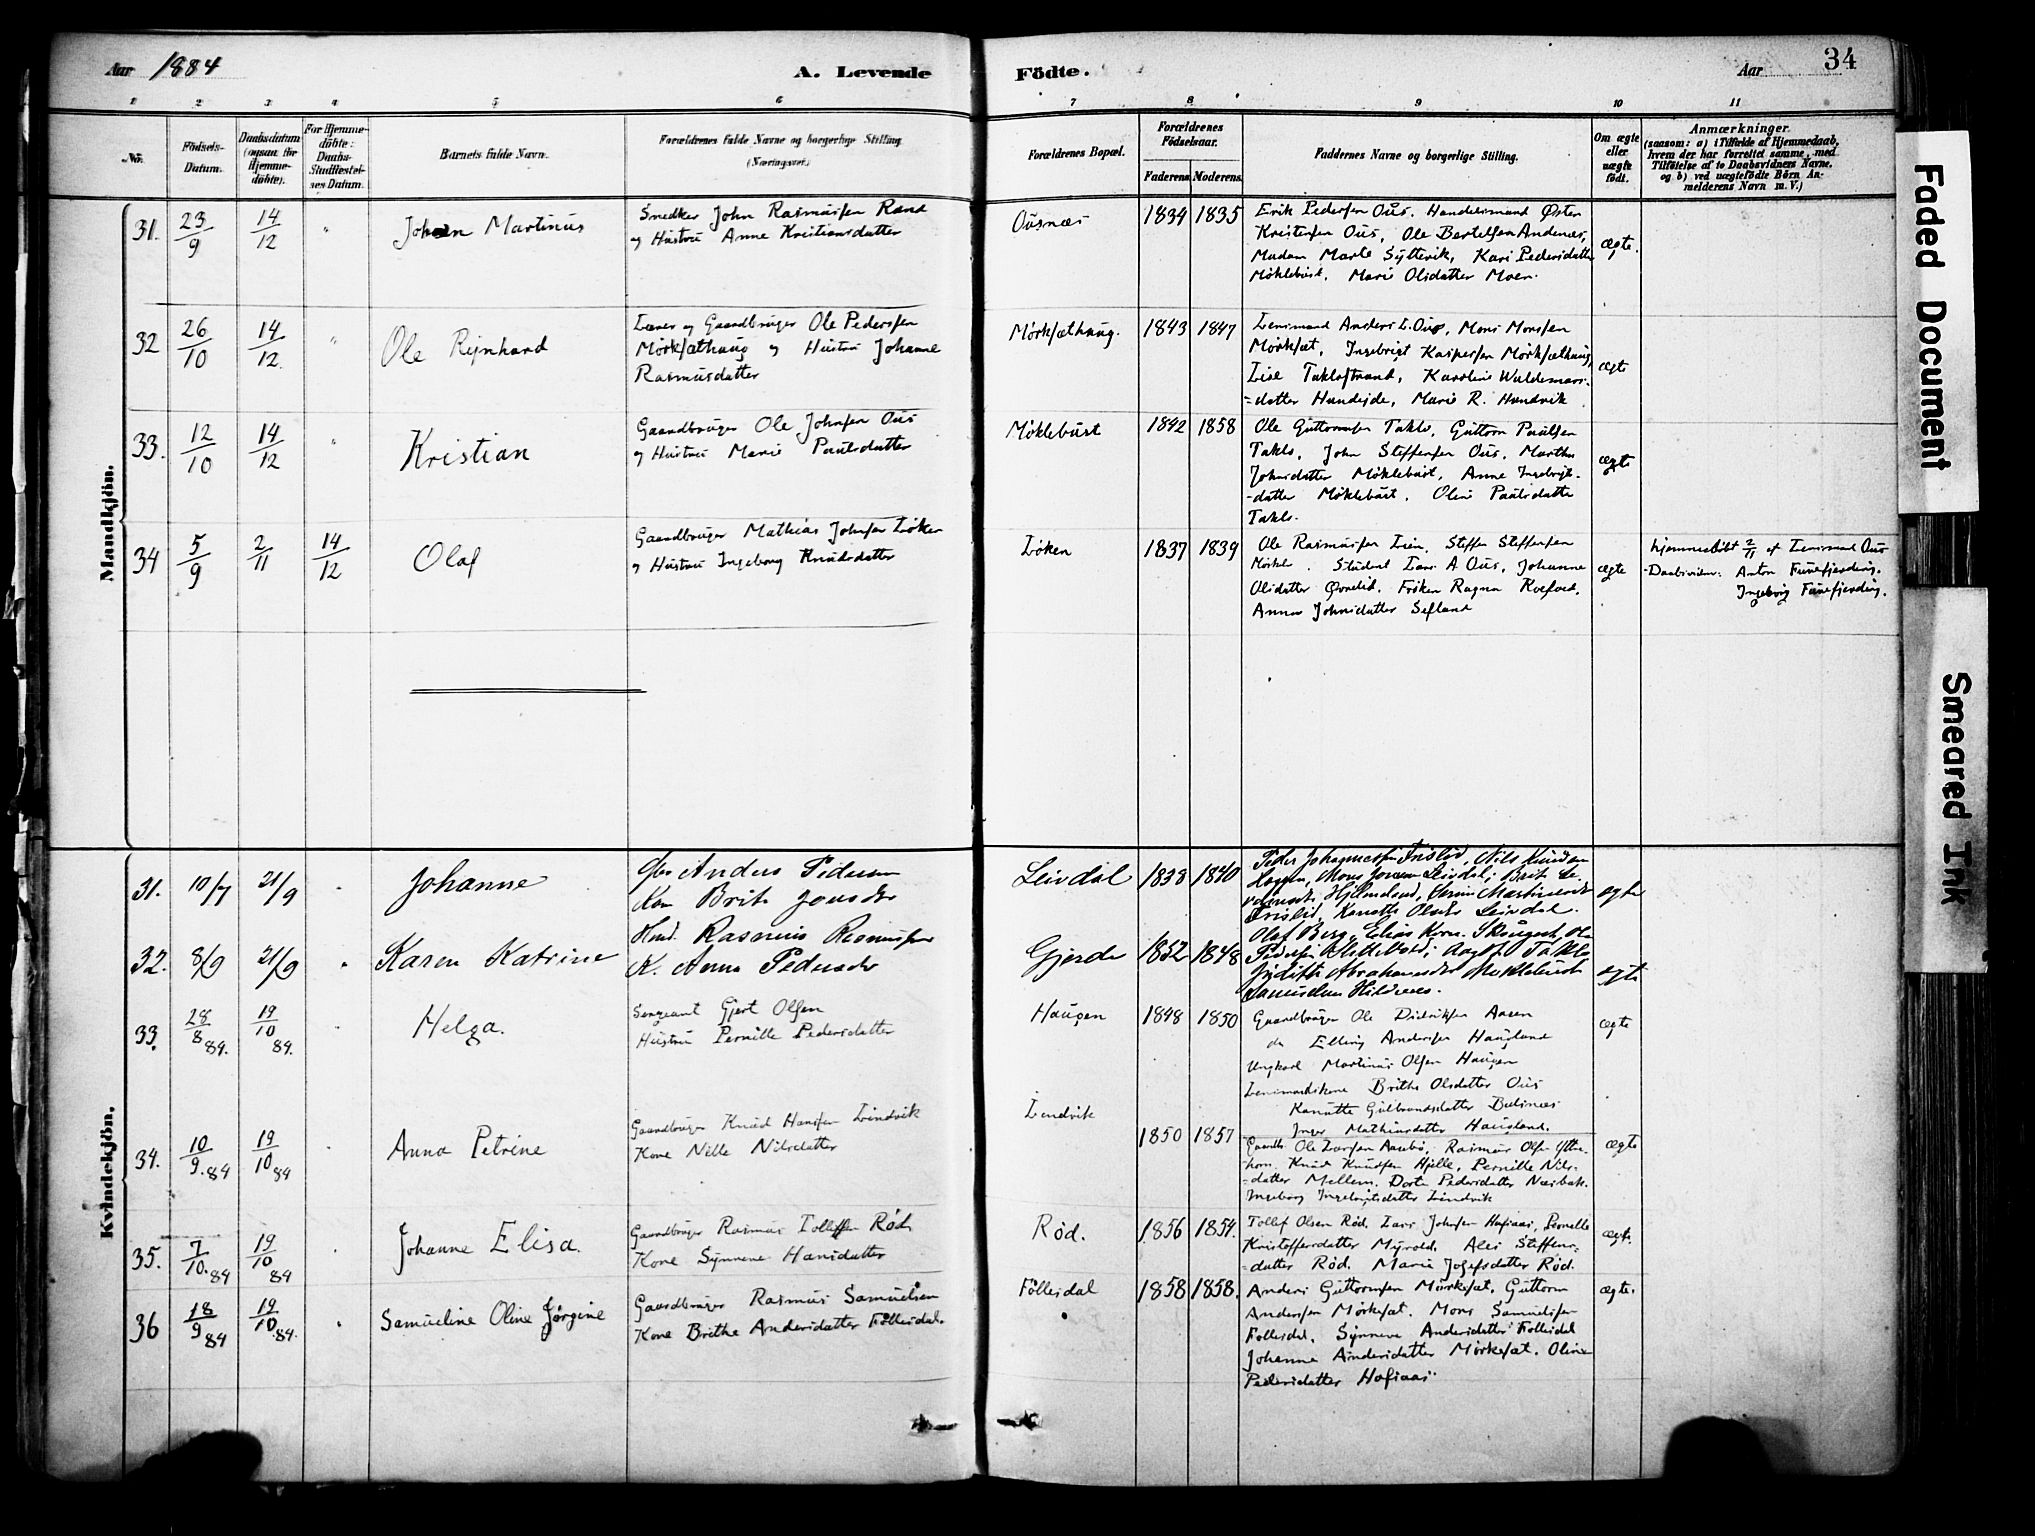 Aar 1884
A. Levende Födte.
Aar 34
1 2 3 4 5 6 7 8 9 10 11
No.
Födsels-Datum.
Daabsdatum (ogsaa for Hjemme-döbte).
For Hjemme-döbte: Daabs-Stadfæstel-ses Datum.
Barnets fulde Navn.
Forældrenes fulde Navne og borgerlige Stilling (Næringsvei.)
Forældrenes Bopæl.
Forældrenes Födselsaar.
Faderens Moderens.
Faddernes Navne og borgerlige Stilling.
Om ægte eller uægte födt.
Anmærkninger.
(saasom: a) i Tilfælde af Hjemmedaab,
hvem der har forrettet samme, med
Tilföielse af to Daabsvidners Navne,
og b) ved uægtefödte Börn An-
melderens Navn m. V.)
Mandkjön.
31. 23/9 14/12 " Johan Martinus
Snedker John Rasmussen Rand
og Hustru Anne Kristiansdatter
Ousnæs 1834 1835
Erik Pedersen Ous. Handelsmand Østen
Kristensen Ous, Ole Bertelsen Andenæs,
Madam Marte Sÿltevik, Kari Pedersdatter
Møklebust. Marie Olsdatter Moen.
ægte.
32 26/10 14/12. " Ole Rejnhard
og Gaardbruger Ole Pedersen
Mørksæthaug og Hustru Johanne
Rasmusdatter
Mørksæthaug. 1843 1847
Lensmand Anders L. Ous, Mons Monsen
Mørksæt, Ingebrigt Kaspersen Mørksæthaug,
Lise Taklostrand, Karoline Waldemars-
=datter Hundejde, Marie R. Hundvik
ægte
33. 12/10 14/12 " Kristian
Gaardbruger Ole Johnsen Ous
og Hustru Marie Paulsdatter
Møklebust 1842 1858
Ole Guttormsen Taklo, Guttorm Paulsen
Taklo, John Steffensen Ous, Martha
Johnsdatter Møklebust, Anne Ingebrigts-
-datter Møklebust. Oline Paulsdatter
Taklo.
ægte
34 5/9 2/11 14/12 Olaf
Gaardbruger Mathias Johnsen Løken
og Hustru Ingeborg Knudsdatter
Løken 1837 1839
Ole Rasmussen Lien, Steffen Steffensen
Student Lars A Ous, Johanne
Olsdatter Øvrelid. Frøken Ragna Koefoed,
Anna Johnsdatter Sefland
ægte
hjemmedøbt 2/11 af Lensmand Ous
-Daabsvidner: Anton Furefjerding.
Ingeborg Furefjerding.
Kvindekjön.
31. 10/7 21/9 " Johanne
Anders Pedersen
Kone Brite Jonsdtr
Leivdal 1838 1840
Peder Johannessen Frislid, Nils Knudsen
Mons Jonsen Leivdal; Brite
Hjelmeland,
Frislid, Olsdtr Leivdal.
ægte
32. 8/9 21/9 " Karen Katrine
Hmd. Rasmus Rasmussen
K. Anna Pedersdtr
Gjerde 1852 1848
Olaf Berg, Elias Korn. Skougest, Ole
Pedersen Aagot Taklo
Judithe Abrahamsdtr Møklebust
Hildenes.
ægte
33. 28/8 84. 19/10 84. Helga.
Sergeant Gjert Olsen
Hustru Pernille Pedersdatter
Haugen 1848 1850
Gaardbruger Ole Didriksen Aasen
do Elling Andersen Haugland
Ungkarl Martinus Olsen Haugen
Lensmandskone Brithe Olsdatter Ous
Kanutte Gulbrandsdatter Bulsnæs
Inger Mathiasdatter Haugland.
ægte
34. 10/9. 84 19/10 84 Anna Petrine
Gaardbruger Knud Hansen Lindvik
Kone Nille Nilsdatter
Lindvik
1850 1857
Gaardb. Ole Larsen Aarebø, Rasmus Olsen Ytre-
horn. Knud Knudsen Hjelle, Pernille Nils-
=datter Mellem. Dorte Pedersdatter Næsbak.
Ingeborg Ingebrigtsdatter Lindvik
ægte
35. 7/10. 84 19/10 84 Johanne Elisa.
Gaardbruger Rasmus Tollefsen Rød
Kone Synneve Hansdatter
Rød. 1856 1854.
Tollef Olsen Rød. Lars Johnsen Hafsaas, Pernelle
Kristoffersdatter Myrold. Alis Steffens-
=datter Rød. Marie Josefsdatter Rød.
ægte.
36 18/9 84 19/10 84. " Samueline Oline Jørgine
Gaardbruger Rasmus Samuelsen
Kone Brithe Andersdatter Følleidal.
Følleidal 1858 1858.
Anders Guttormsen Mørkesæt, Guttorm
Andersen Mørkesæt. Mons Samuelsen
Følleidal, Synneve Andersdatter Følleidal
Johanne Andersdatter Mørkesæt. Oline
Pedersdatter Hafsaas.
ægte.
Faded Document
Smeared Ink